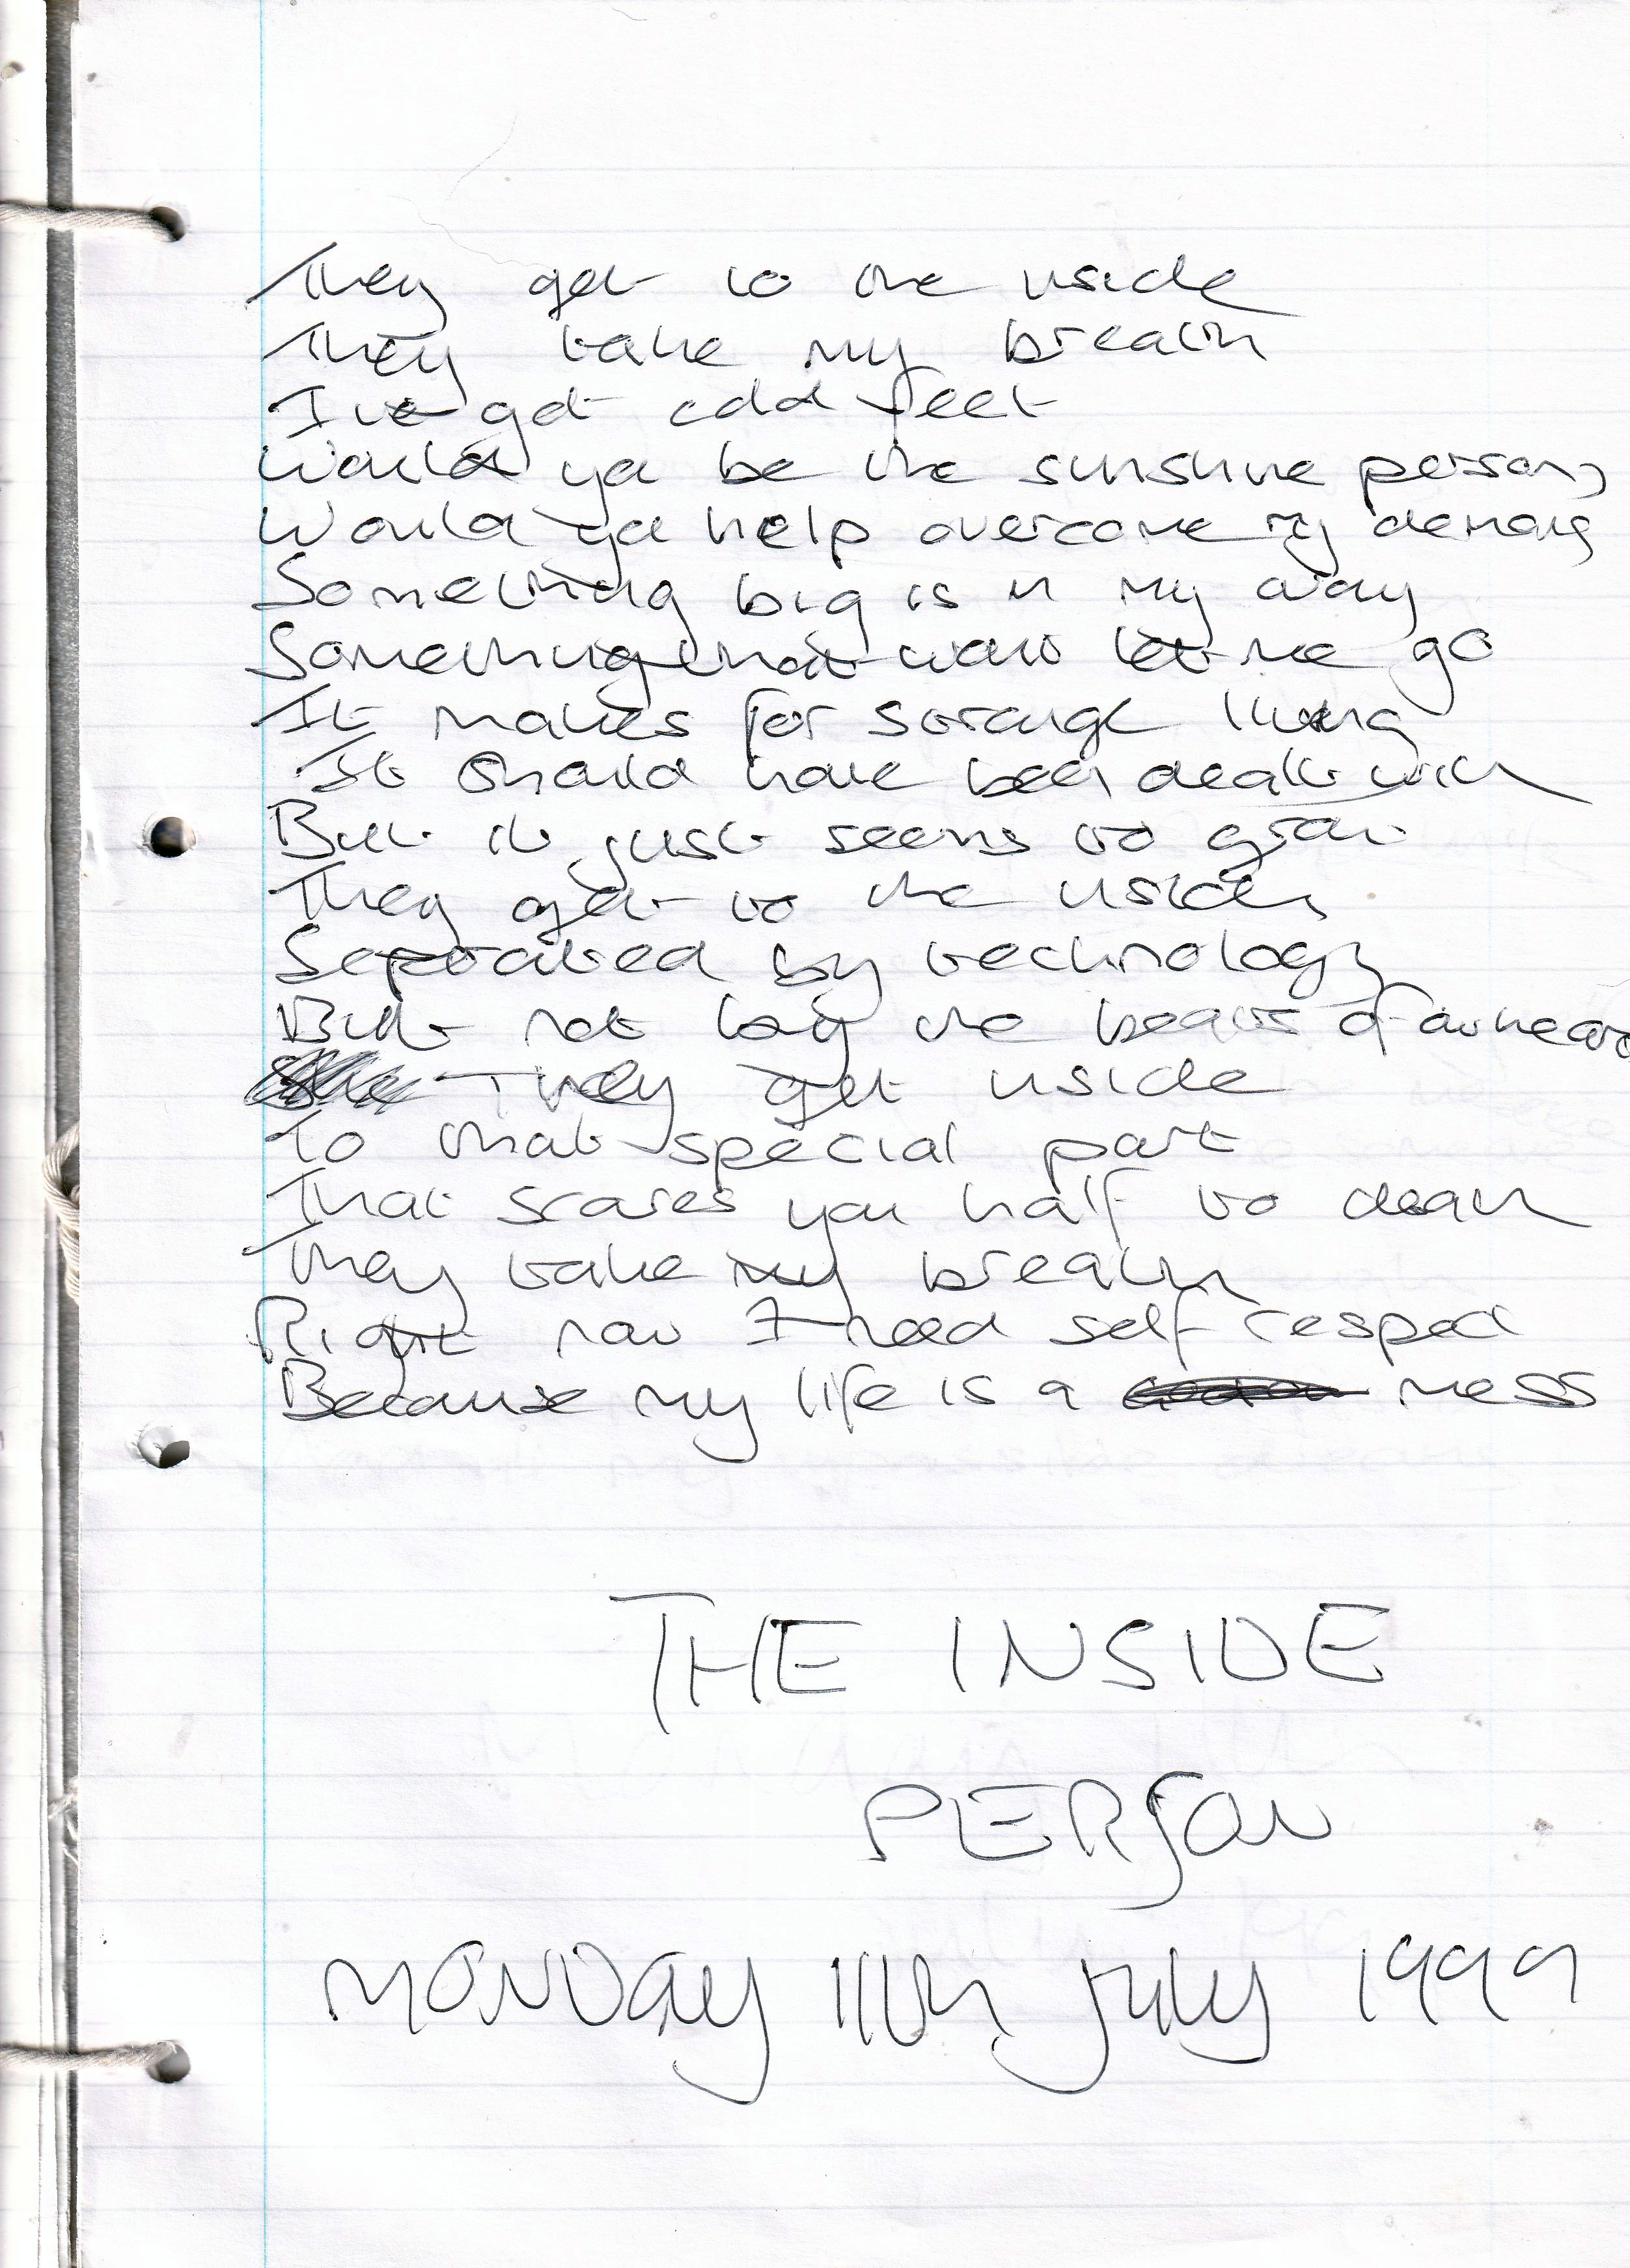 They get to the inside
They take my breath
I've got cold feet
Would ya be the sunshine person,
Would ya help overcome my demons
Something big is in my way
Something that won't let me go
It makes for strange living
It should have been dealt with
But it just seems to grow
They get to the inside,
Seperated by technology
But not by the beats of our hearts
They get inside
To that special part
That scares you half to death
They take my breath
Right now I need self respect
Because my life is a mess
THE INSIDE
PERSON
MONDAY 11th July 1999